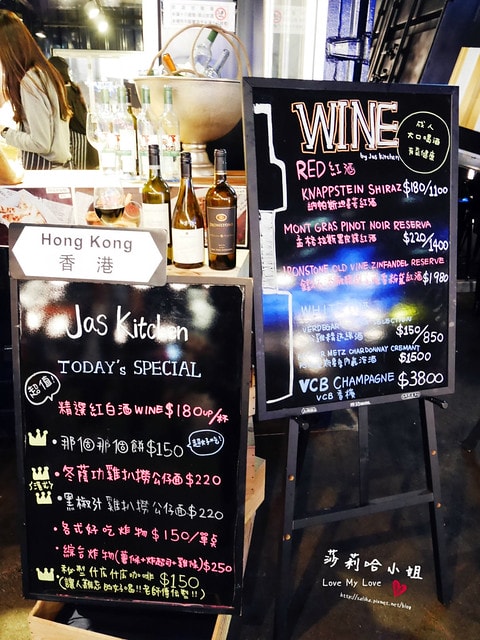 Hong Kong
香港
Jas Kitchen
TODAY's SPECIAL
超值
精選紅白酒 WINE $180up/杯
那個那個餅 $150
冬蔭功雞扒撈公仔麵 $220
黑椒汁雞扒撈公仔面 $220
各式好吃炸物 $150/單點
綜合炸物(薯條+炸起司+雞條) $250
秘製什店什店咖啡 $150
WINE
by Jas Kitchen
成人
大口喝酒
有益健康
RED 紅酒
KNAPPSTEIN SHIRAZ $180/1100
納帕斯坦希哈紅酒
MONT GRAS PINOT NOIR RESERVA
$220/1400
IRONSTONE OLD VINE ZINFANDEL RESERVE
$1980
$150/850
METZ CHARDONNAY CREMANT
$1500
VCB CHAMPAGNE $3800
VCB 香檳
莎莉哈小姐
Love My Love
http://saliha.pixnet.net/blog